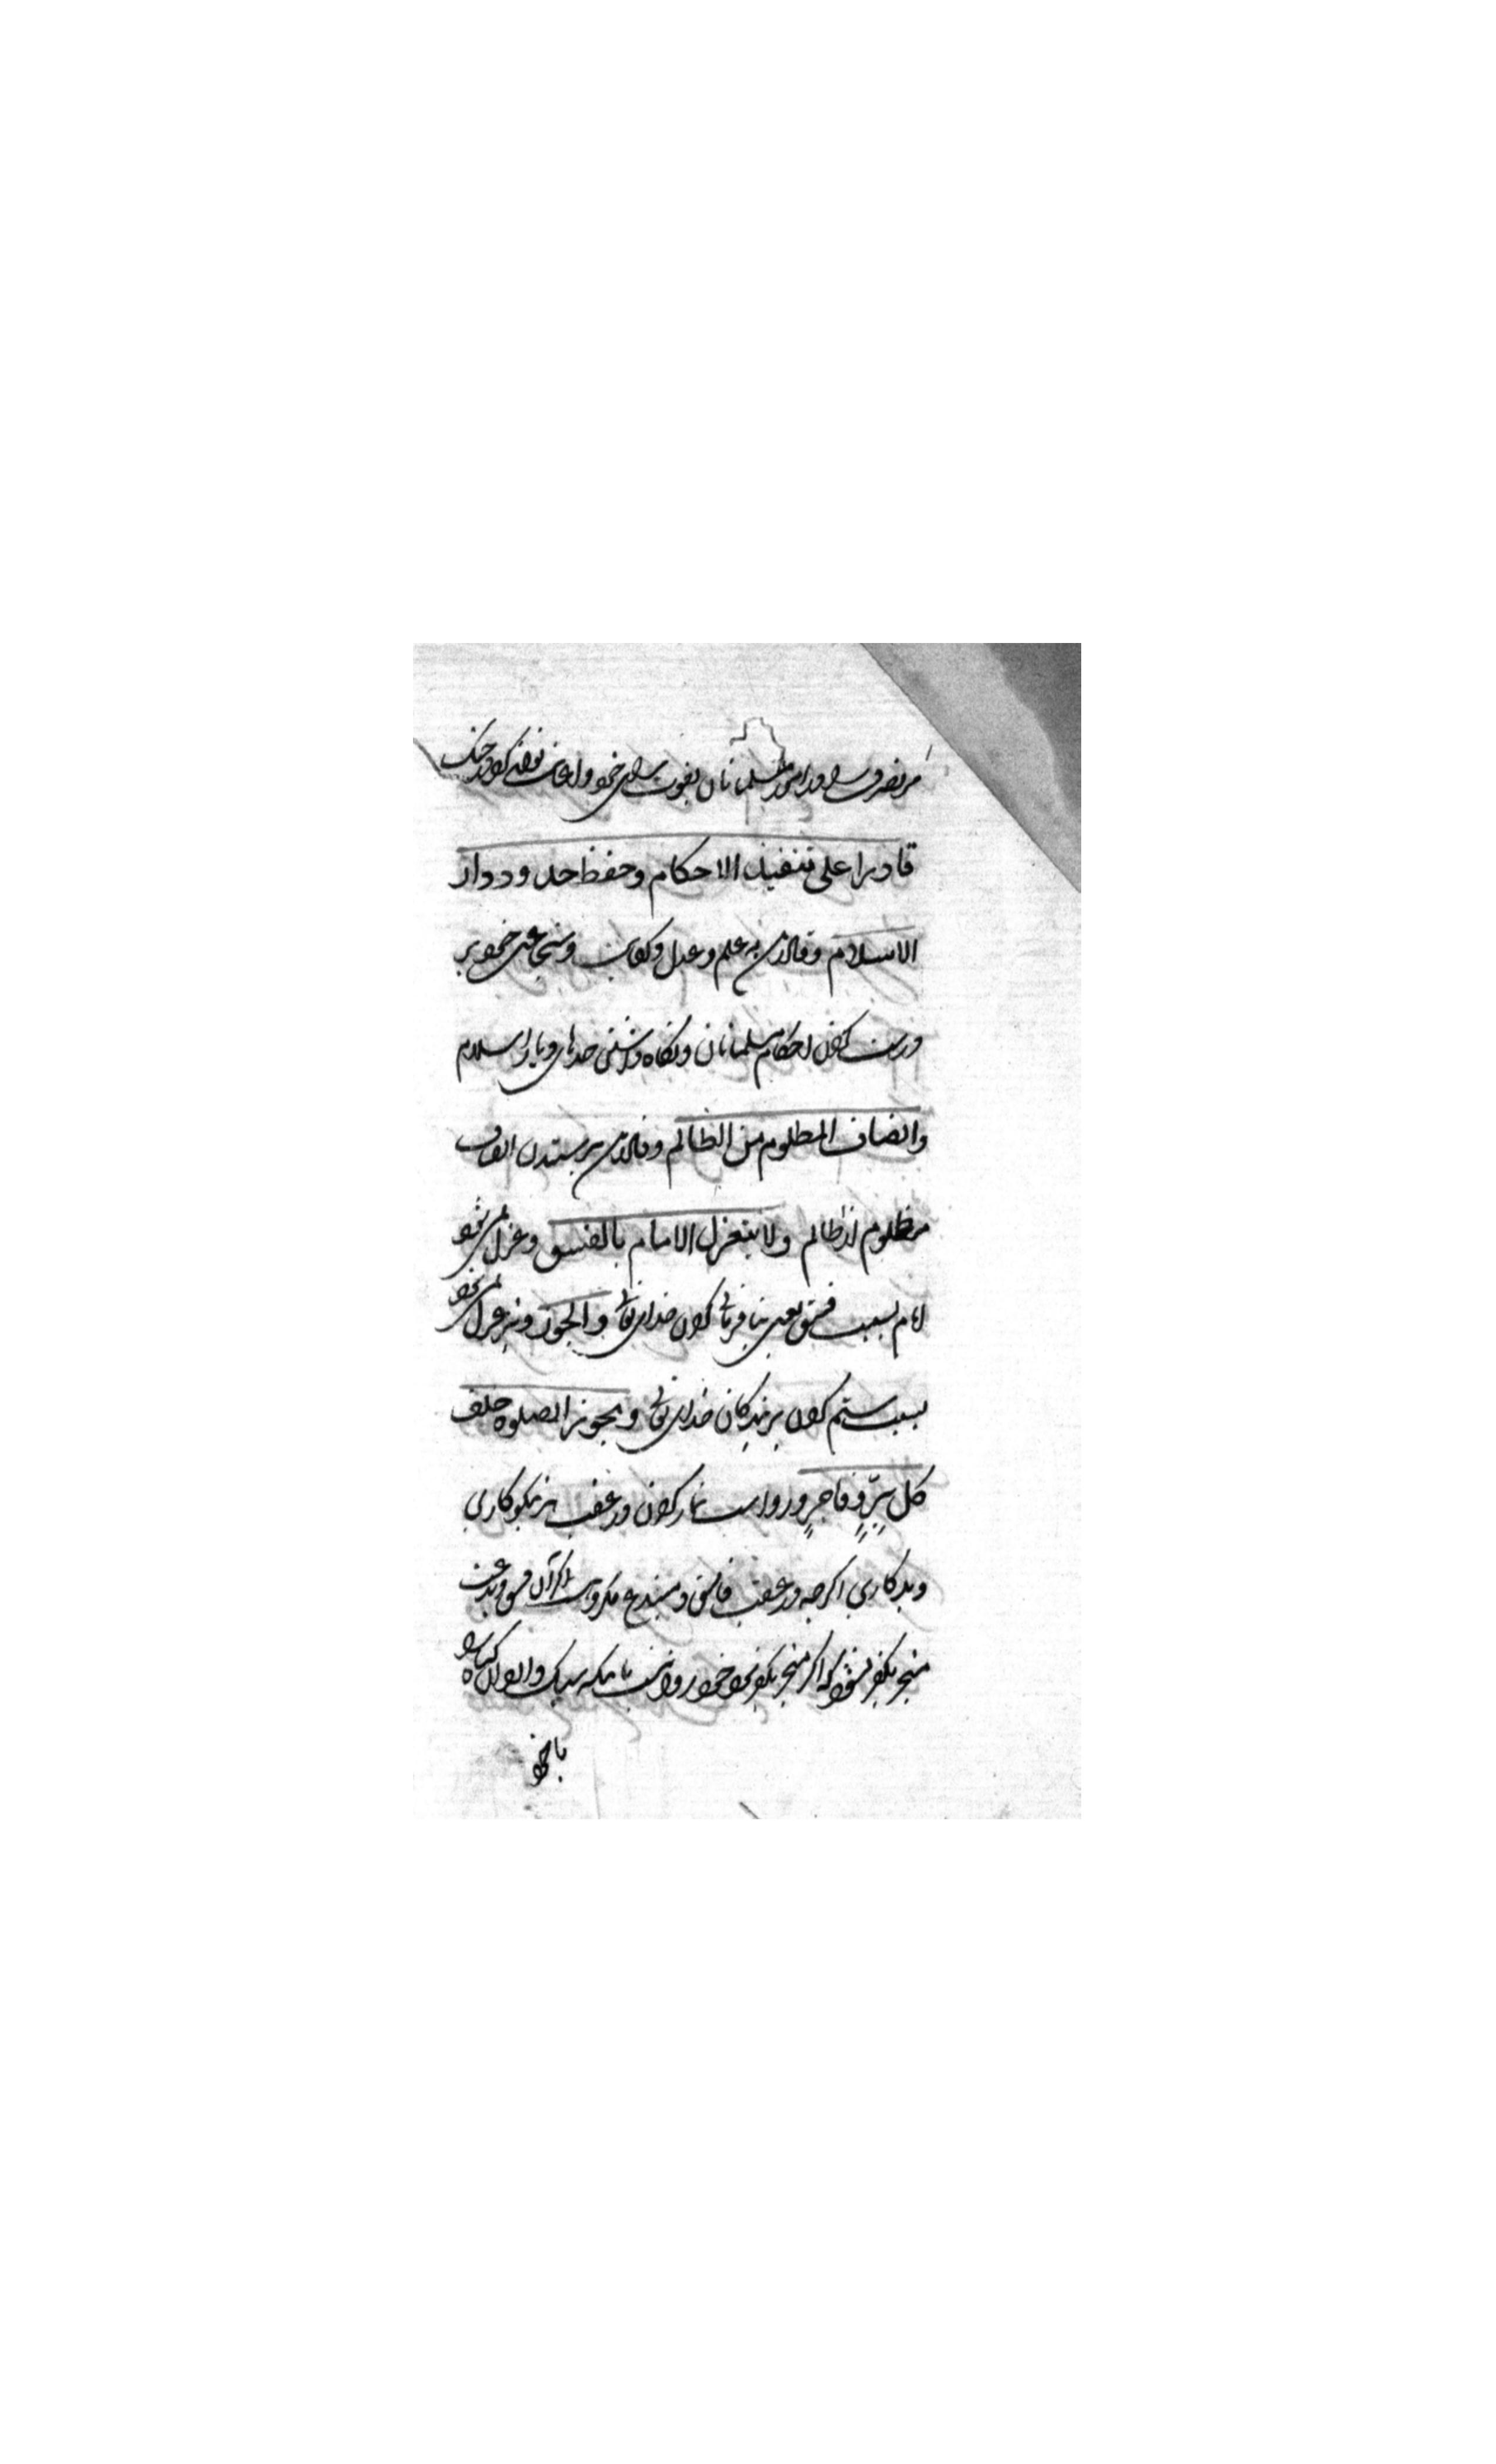 مر تصرف را در امور مسلمانان بقوت رای خود و اعانت توفیق کردن جنگ
قادرا علی تنفیذ الاحکام وحفظ حدود دار
الاسلام و قادر به علم و عدل و کفایت و شجاعت خود بر
درست کردن احکام مسلمانان و نگاه داشتن حدهای دیار اسلام
وانصاف المظلوم من الظالم و قادر بر ستدن انصاف
مظلوم از ظالم ولا ینعزل الامام بالفسق و عزل نمی شود
امام بسبب فسق یعنی بنافرمانی کردن خدای تعالی والجور و نیز عزل نمی شود
بسبب ستم کردن بر بندگان خدای تعالی ویجوز الصلوه خلف
کل بَرٍّ وفاجرٍ و رواست نماز کردن در عقب هر نیکوکاری
و بدکاری اگرچه در عقب فاسق و مبتدع مکروه است اگر آن فسق و بدعت
منجر بکفر نشود که اگر منجر بکفر شود خود روا نیست
باخود